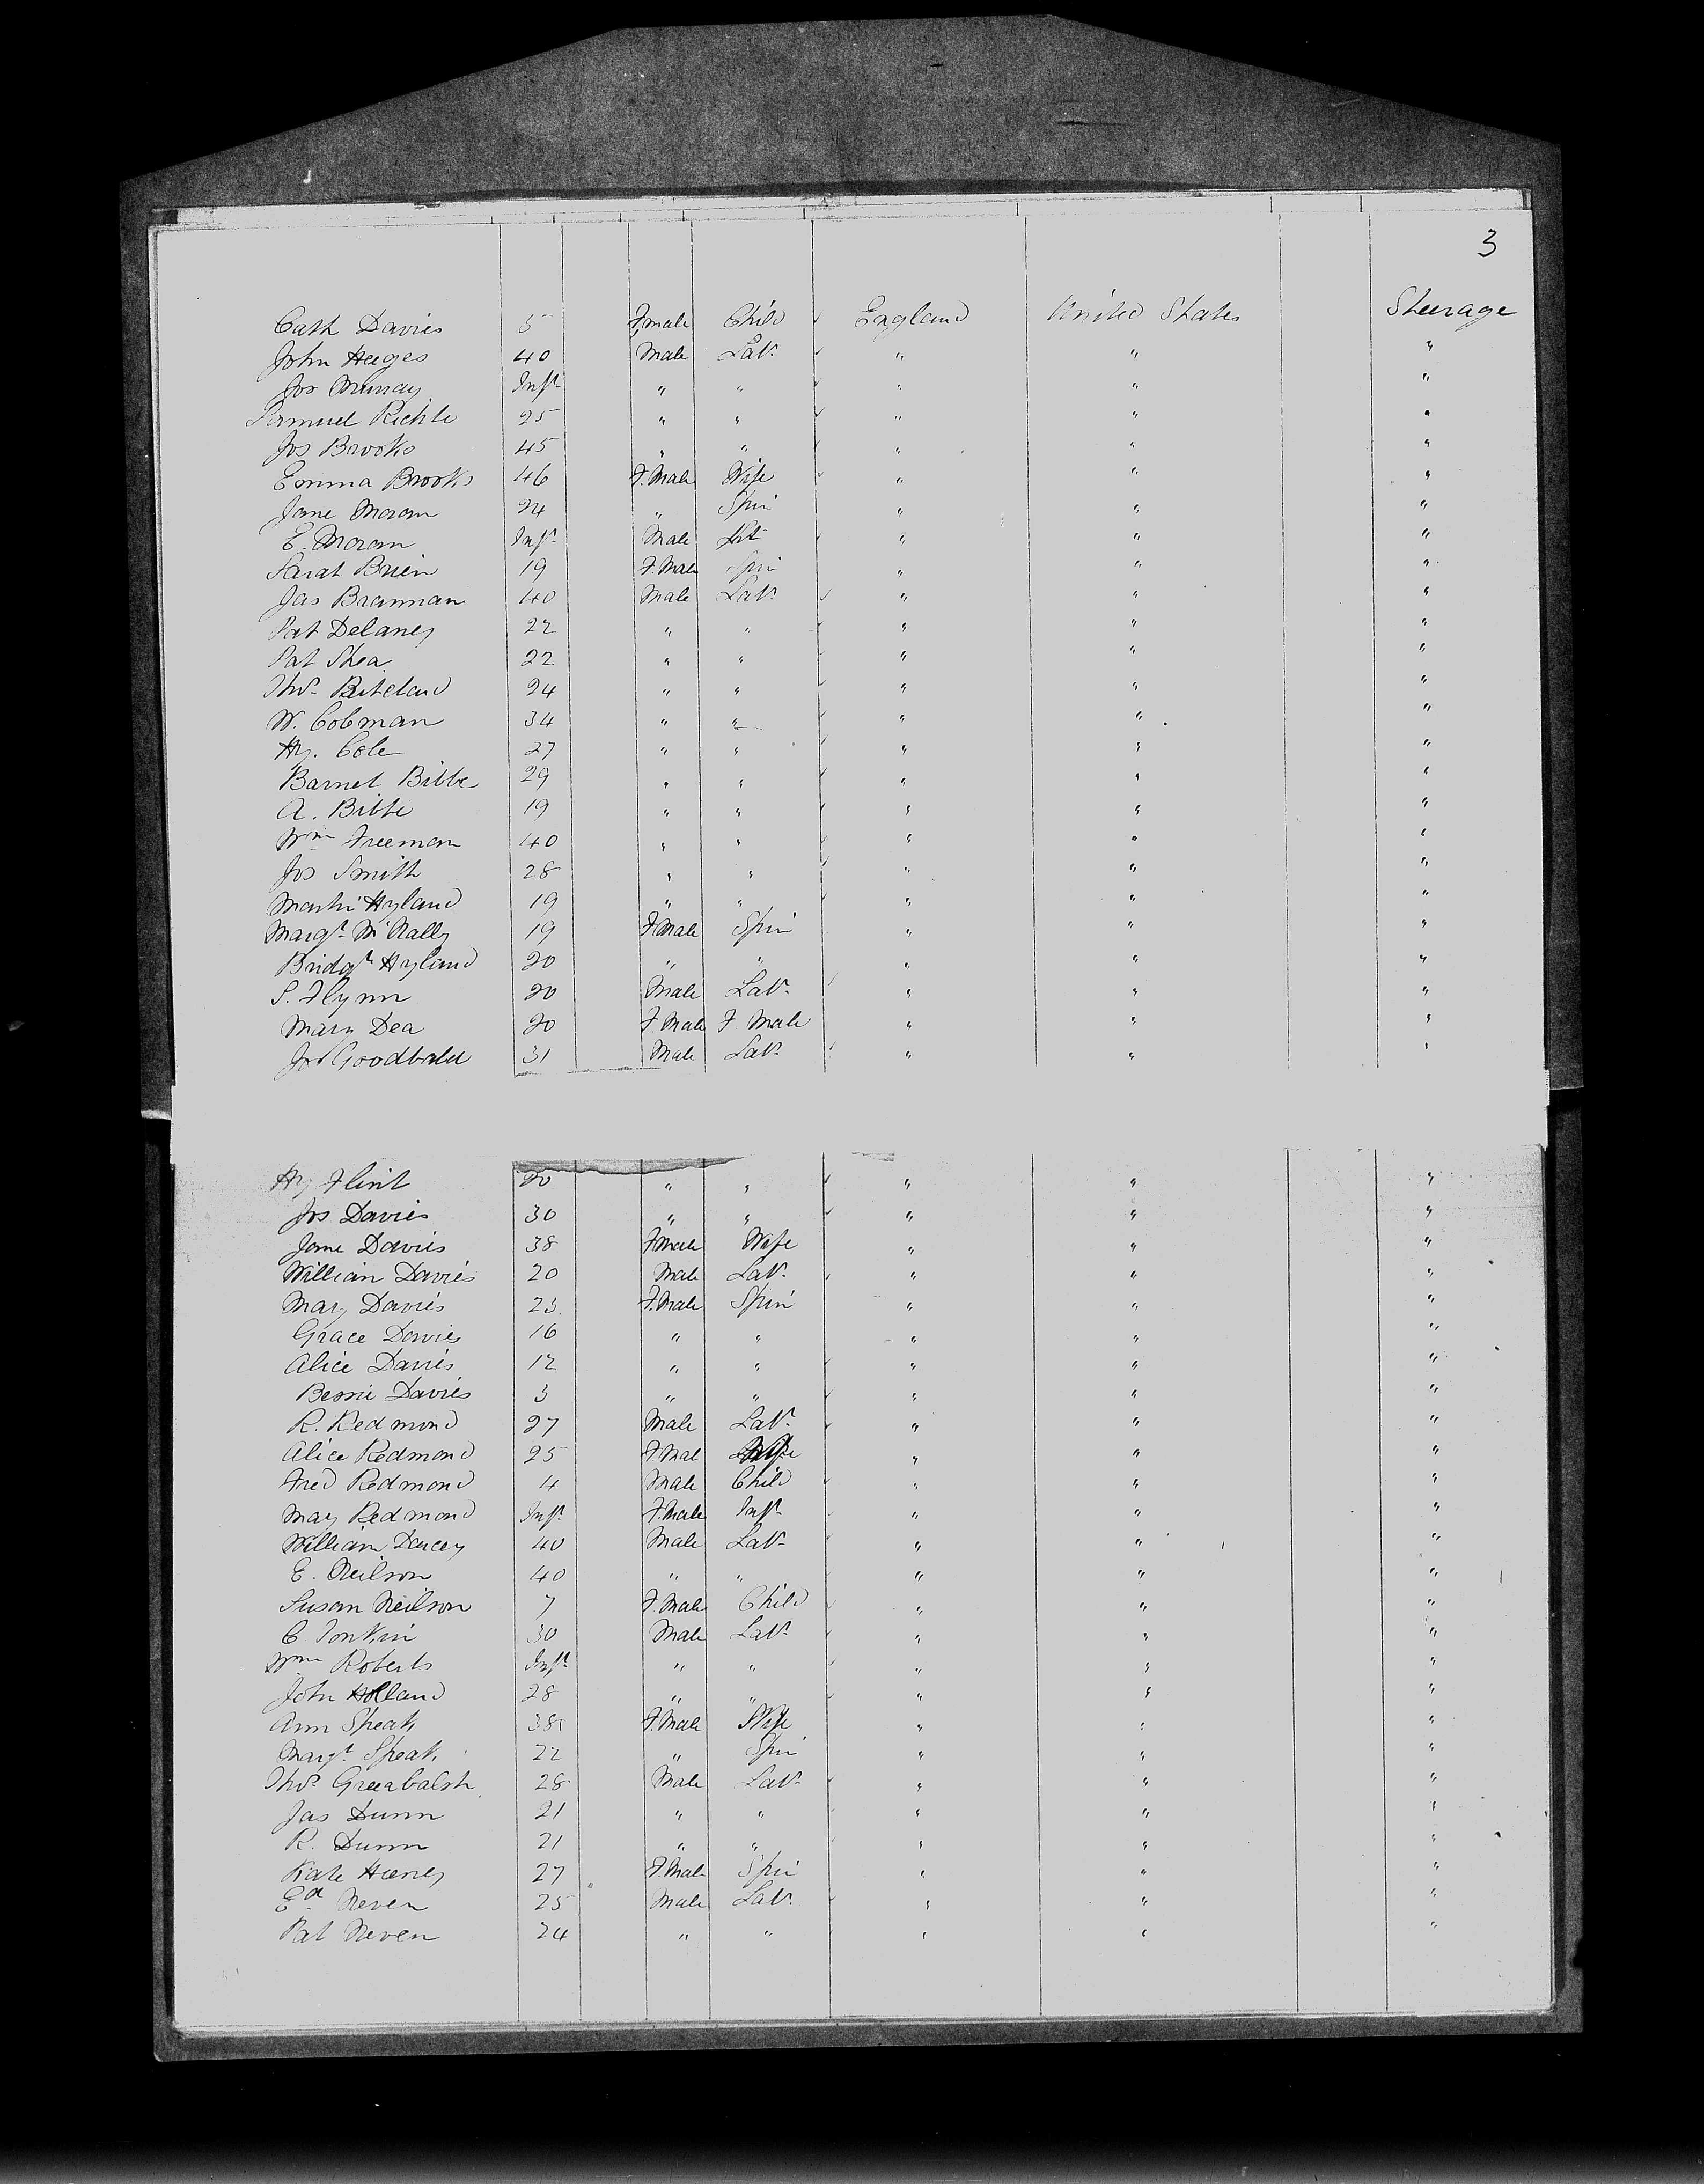 3
Cath Davies 5 F.male Child England United States Steerage
John Heeges 40 Male Labr " " "
Jos Murray Inft " " " " "
Samuel Richte 25 " " " " "
Jos Brooks 45 " " " " "
Emma Brooks 46 F.Male Wife " " "
Jane Moran 24 " Spin " " "
E. Moran Inft Male " " "
Sarah Brien 19 F.Male Spin " " "
Jas Brannan 40 Male Labr " " "
Pat Delaney 22 " " " " "
Pat Shea 22 " " " " "
Thos 24 " " " " "
W. Cobman 34 " " " " "
Hy. Cole 27 " " " " "
Barnet Bibbe 29 " " " " "
A. Bibbe 19 " " " " "
Wm Freeman 40 " " " " "
Jos Smith 28 " " " " "
Martin Hyland 19 " " " " "
Margt McNally 19 F.Male Spin " " "
Bridgt Hyland 20 " " " " "
S. Flynn 20 Male Labr " " "
Mary Dea 20 F.Male F.Male " " "
Jos Goodbald 31 Male Labr " " "
Hy Flint 20 " " " " "
Jos Davies 30 " " " " "
Jane Davies 38 F.male Wife " " "
William Davies 20 Male Labr " " "
Mary Davies 23 F.Male Spin " " "
Grace Davies 16 " " " " "
Alice Davies 12 " " " " "
Bessie Davies 3 " " " " "
R. Redmond 27 Male Labr " " "
Alice Redmond 25 F.Mal Wife " " "
Fred Redmond 4 Male Child " " "
May Redmond Inft F.Male Inft " " "
William Darcey 40 Male Labr " " "
E. Neilson 40 " " " " "
Susan Neilson 7 F.Male Child " " "
C. Tonkin 30 Male Labr " " "
Wm Roberts Inft " " " " "
John Holland 28 " " " " "
Ann Speak 38 F.Male Wife " " "
Margt Speak 22 " Spin " " "
Thos Greenbalsh 28 Male Labr " " "
Jas Dunn 21 " " " " "
R. Dunn 21 " " " " "
Kate Haney 27 F.Male Spin " " "
Ed Neven 25 Male Labr " " "
Pat Neven 24 " " " " "